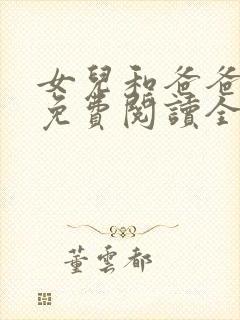 女兒和爸爸
免費閱讀全
董雲都